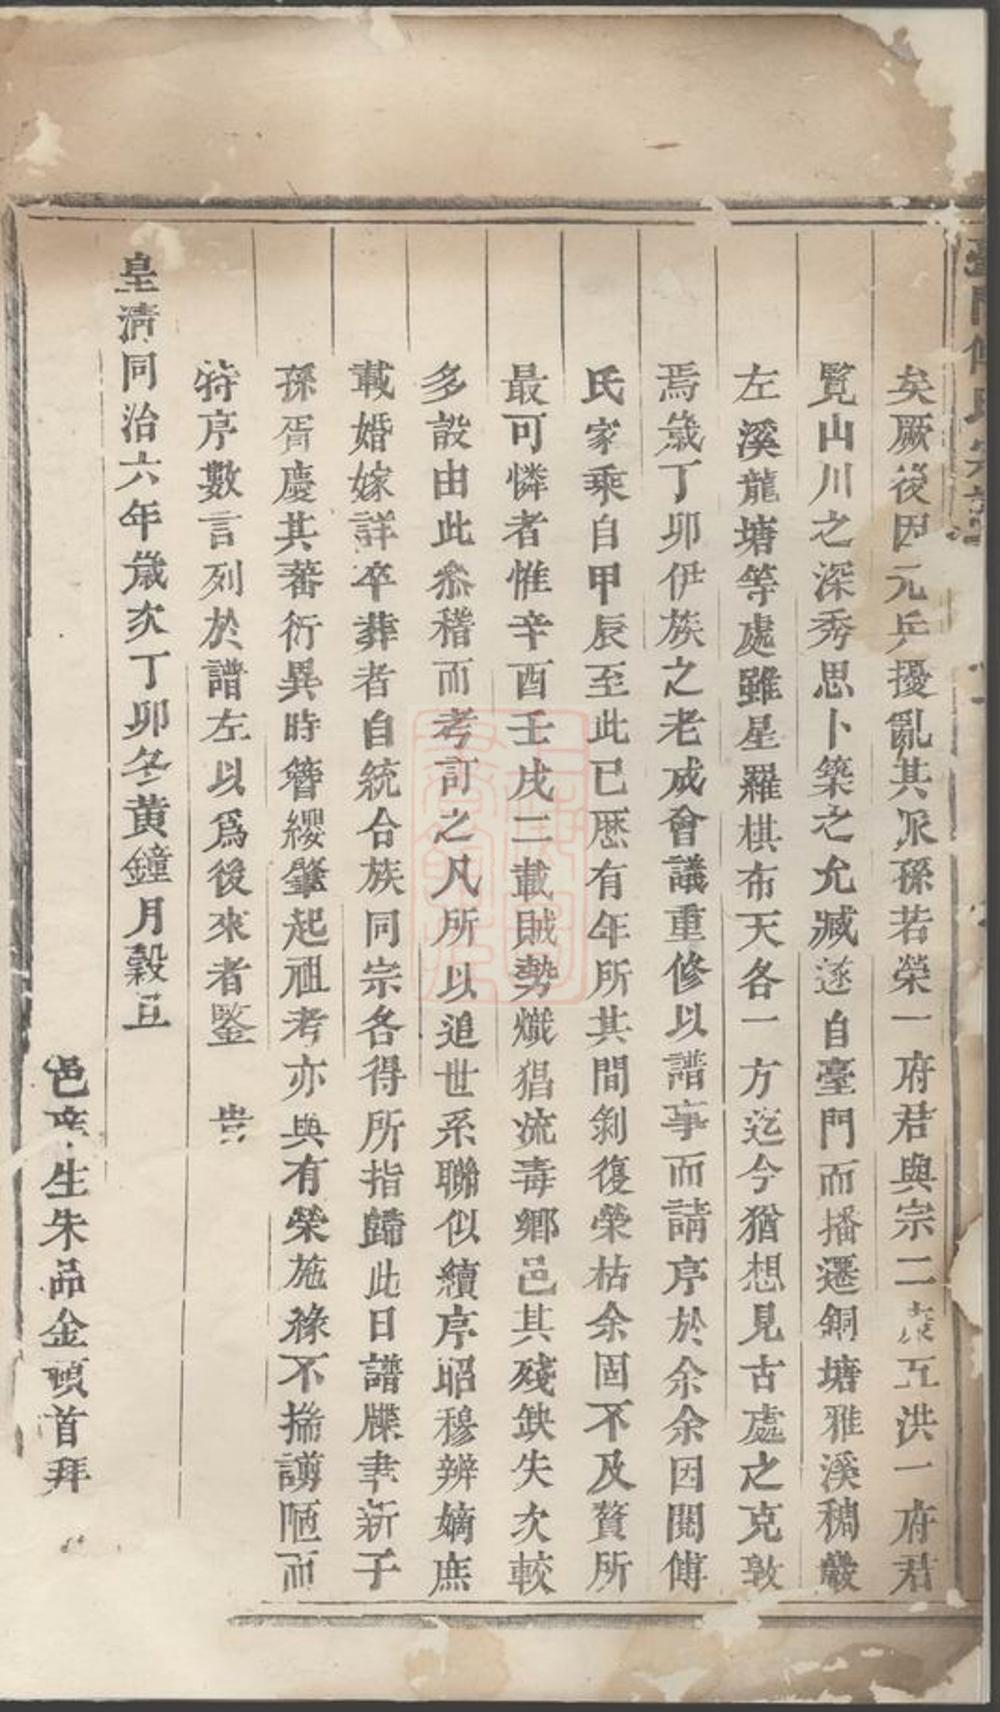 臺門傅氏宗譜
矣厥後因元兵擾亂其派孫若榮一府君與宗二 互洪一府君
覽山川之深秀思卜築之允臧遂自臺門而播遷銅塘雅溪稠巖
左溪龍塘等處雖星羅棋布天各一方迄今猶想見古處之克敦
焉歲丁卯伊族之老成會議重修以譜事而請序於余余因閱傅
氏家乘自甲辰至此已歷有年所其間剝復榮枯余固不及贅所
最可憐者惟辛酉壬戌二載賊勢熾猖流毒鄉邑其殘缺失次較
多設由此叅稽而考訂之凡所以追世系聯似續序昭穆辨嫡庶
載婚嫁詳卒葬者自統合族同宗各得所指歸此日譜牒聿新子
孫胥慶其蕃衍異時簪纓肇起祖考亦與有榮施祿不揣謭陋而
特序數言列於譜左以爲後來者鑒 旹
皇清同治六年歲次丁卯冬黃鐘月穀旦
邑庠生朱品金頓首拜